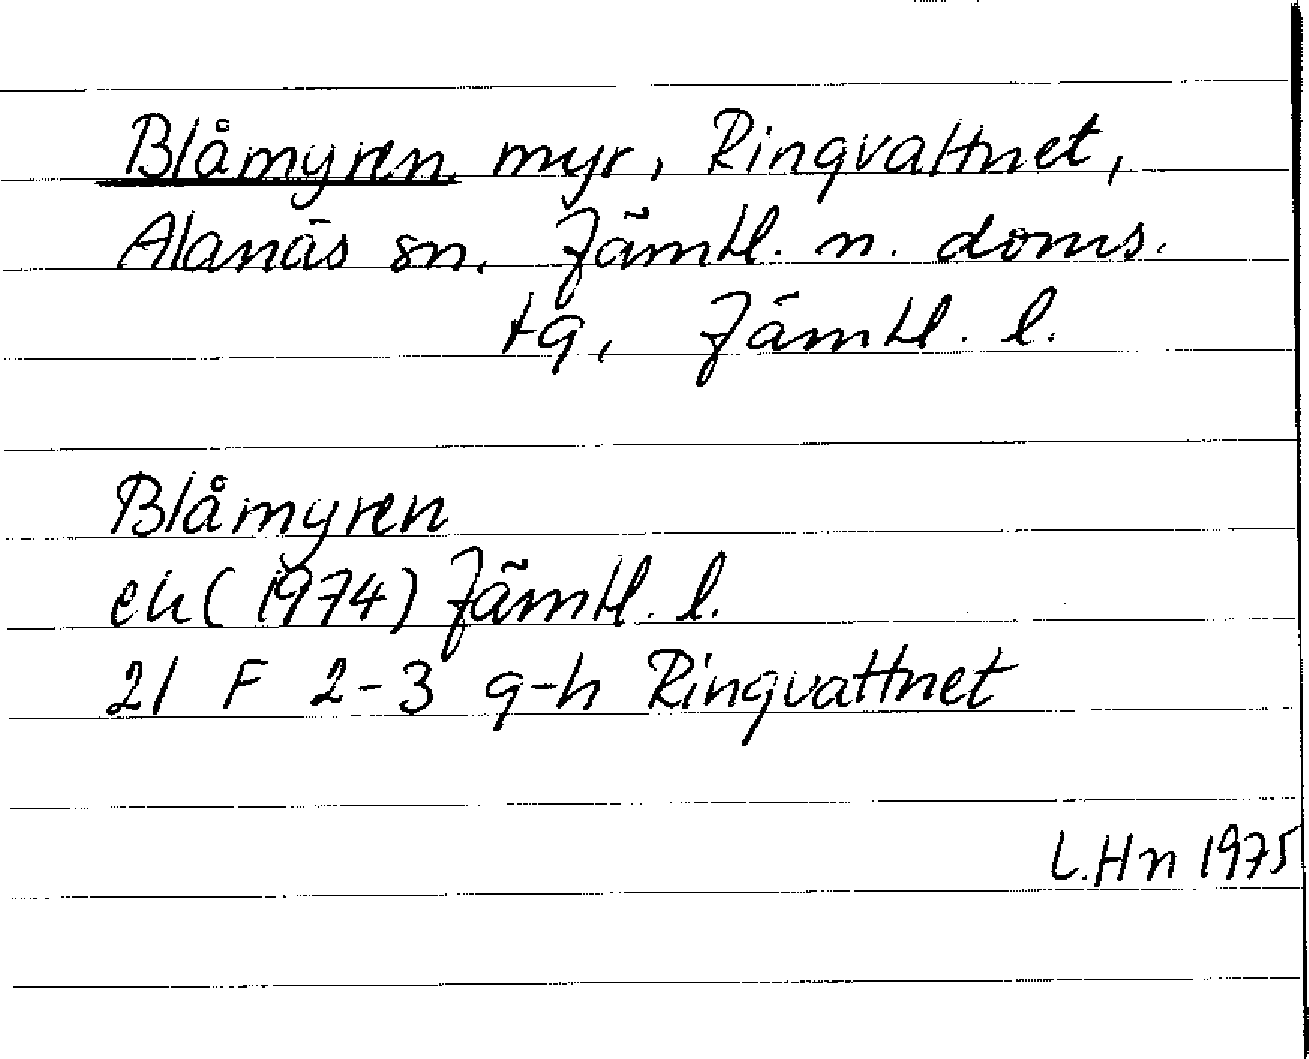 Blåmyren myr, Ringvattnet,
Alanäs sn. Jämtl. n. doms.
tg, Jämtl. l.
Blåmyren
ek (1974) Jämtl. l.
21 F 2-3 g-h Ringvattnet
L.Hn 1975